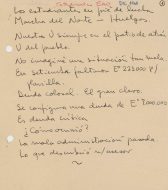 Los estudiantes en pie de lucha
Marcha del Norte – Huelgas
Nuestra U siempre en el patio de atrás
U del pueblo.
No imaginé una situación tan mala.
En setiembre faltaron E° 223000 p/
planilla.
Deuda colosal. El gran clavo.
Se configura una deuda de E° 7.000.000
Es deuda crítica
¿Cómo ocurrió?
La mala administración pasada
Lo que descubrió